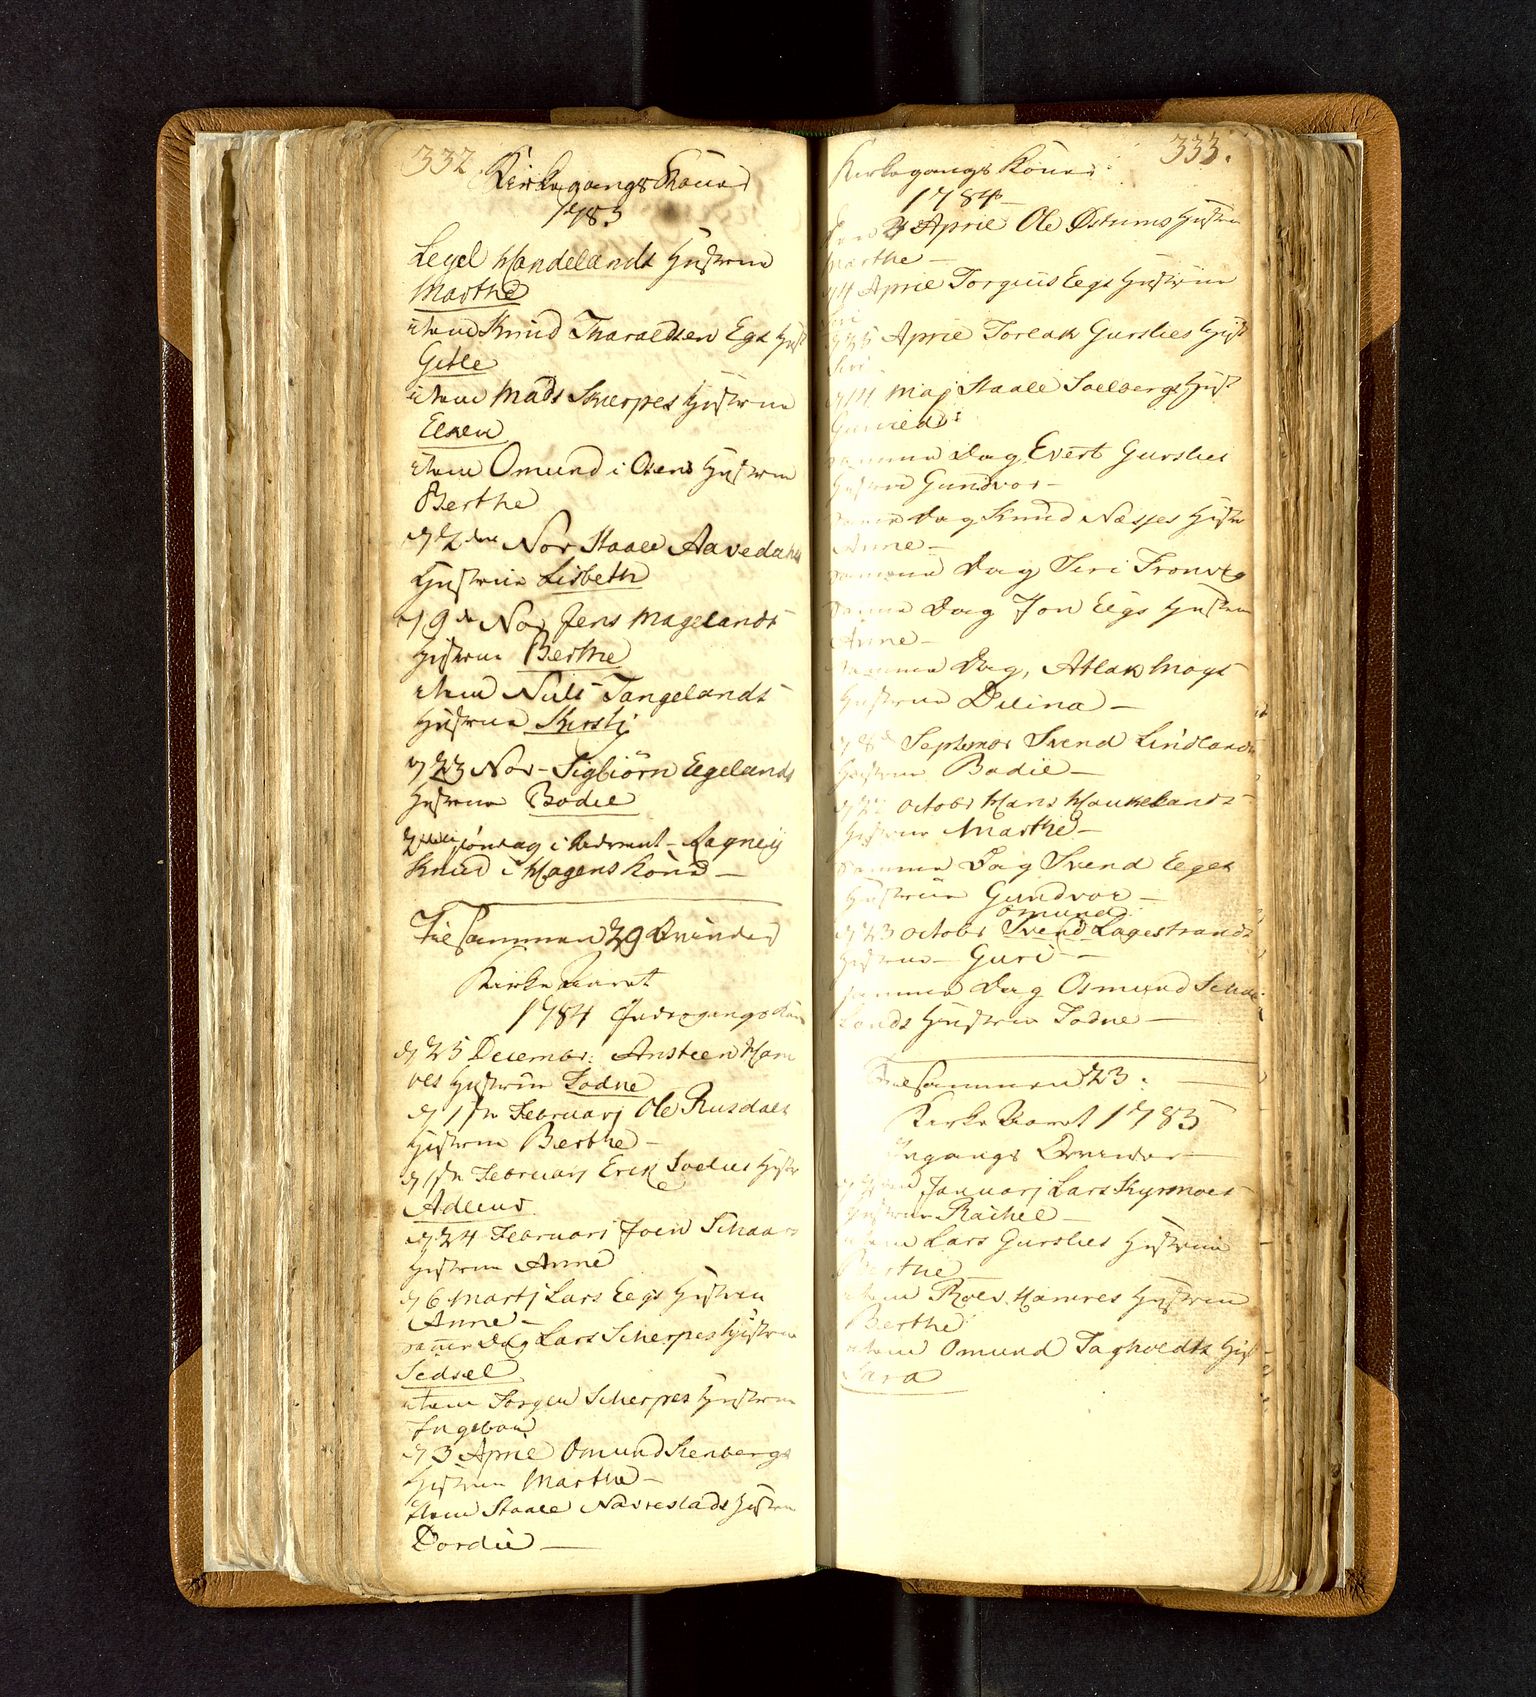 332
Kirkegangs Koner
1783
Legel Handelands Hustrue
Marthe
item Knud Tharaldsen Egs Hust
Gitle
item Mads Skierpes Hustrue
Elsen
item Omund i Osens Hustrue
Berthe
d 2den Nov Staale Aavedahls
Hustrue Lisbeth
d 9de Nov Jens Magelands
Hustrue Berthe
item Niels Tangelands
Hustrue Kirsti
d 23 Nov Sigbiörn Egelands
Hustrue Bodil
Söndag i Advent
Knud i Hagens Kone
Tilsammen 29 Qvinder
Kirke Aaret
1784 Indgangs Kon
d 25 Decembr: Ansteen Ham
res Hustrue Todne
d 1ste Februarj Ole Rusdals
Hustrue Berthe
d 1ste Februarj Erik Hustr
Adleus
d 24 Februari Joen Schaars
Hustrue Anne
d 6 Martj Lars Eegs Hustrue
Anne
Dag Lars Scherpes Hustrue
Sedsel
item Jörgen Scherpes Hustrue
Ingebor
d 3 April Omund Stenbergs
Hustrue Marthe
item Staale Nævestads Hustrue
Dordie
333.
Kirkegangs Koner
1784
April Ole Østums Hustrue
Marthe
d 4 April Torgiuls Eegs Hustrue
Siri
d 25 April Torlak Gurslies Hust
Siri
Maj Staale Soelbergs Hust
Gunild
samme Dag Evert Gurslies
Hustrue Gundvor
samme Dag Knud Næsjes Hustr
Anne
samme Dag Siri Tronvig
samme Dag Jon Eegs Hustrue
Anne
samme Dag, Atlak Moys
Hustrue Delina
d 8de Septembr Svend Lindlands
Hustrue Bodil
octobr Hans Haukelands
Hustrue Marthe
samme Dag Svend Eeges
Hustrue Gundvor
Omund
d 23 octobr Svend Lagestrands
Hustrue Guri
samme Dag Osmund
lands Hustrue Todne
Tilsammen 23.
Kirke Aaret 1785
Ingangs Qvinder
Januarj Lars Kyrmoes
Hustrue Rachel
item Lars Gurslies Hustrue
Berthe
item Roels Hamres Hustrue
Berthe
item Omund Tagholdts Hust
Sara